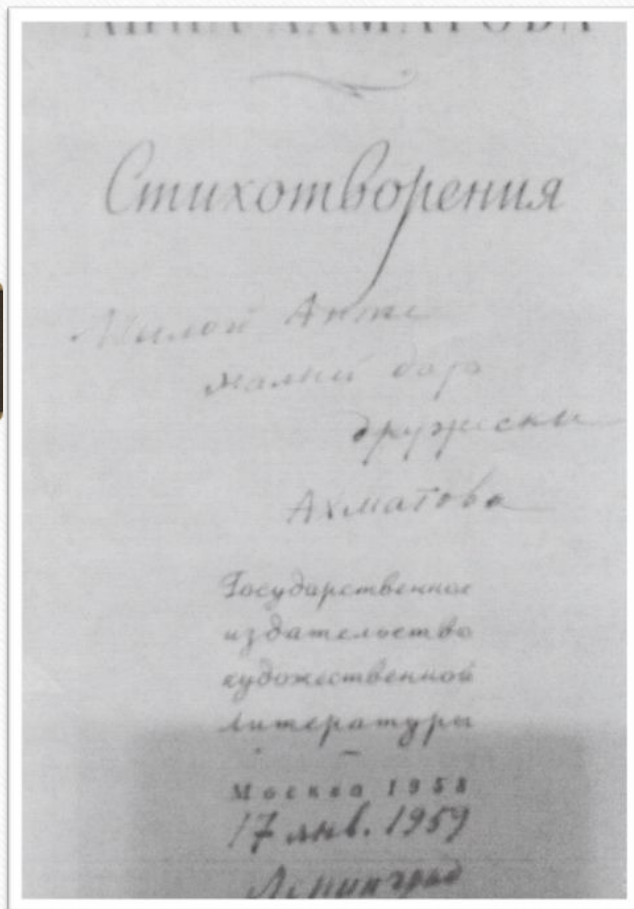 АННА АХМАТОВА
Стихотворения
Милой Анне
малый дар
дружески
Ахматова
Государственное
издательство
художественной
литературы
Москва 1958
17 янв. 1959
Ленинград